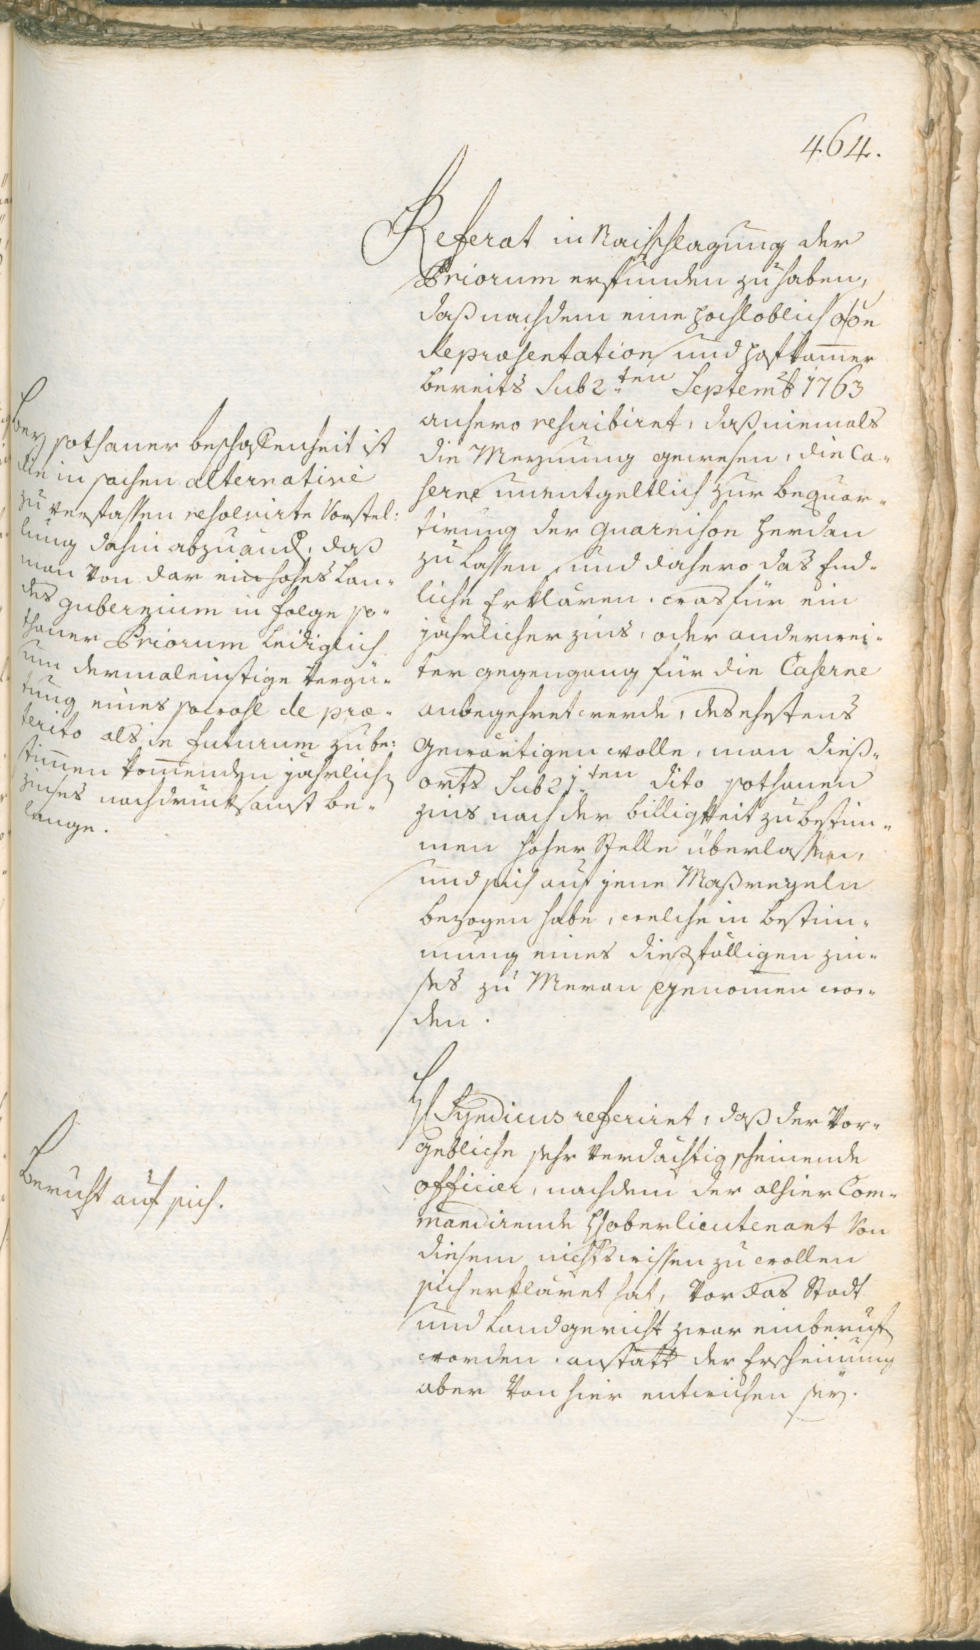 464.
Referat in Nachschlagung der
Priorum erfunden zu haben,
daß nachdem eine hochloblich oöe
Repræsentation und Hofkam̅er
bereits sub 2ten Septemb 1763
anhero rescribiret, daß niemals
die Meynung gewesen, die Ca-
serne unentgeltlich zur bequar-
tirung der guarnison herdan
zu lassen, und dahero das End-
liche Erklären, was für ein
jährlicher zins, oder anderwei-
ter gegengang für die Caserne
anbegehret werde, des ehestens
gewärtigen wolle, man dieß-
orts sub 21ten dito sothanen
zins nach der billigkeit zu bestim-
men hoher Stelle überlassen,
und sich auf jene Maßregeln
bezogen habe, welche in bestim-
mung eines dießfälligen zin-
ses zu Meran genom̅en wor-
den.
Bey sothaner beschaffenheit ist
die in sachen alternative
zu verfassen resolvirte Vorstel-
lung dahin abzuänd, daß
man von dar ein hohes Lan-
des gubernium in folge so-
thaner Priorum lediglich
um dermaleinstige vergü-
tung eines sowohl de præ-
terito als in futurum zu be-
stim̅en kom̅enden jährlich
zinses nachdruksamst be-
lange.
H Syndicus referiret, daß der Vor-
gebliche sehr verdächtig scheinende
officier, nachdem der alhier Com-
mandirende H oberlieutenant von
diesem nichts wissen zu wollen
sich erkläret hat, vor das Stadt
und Landgericht zwar einberuf
worden, anstatt der Erscheinung
aber von hier entwichen sey.
Beruht auf sich.